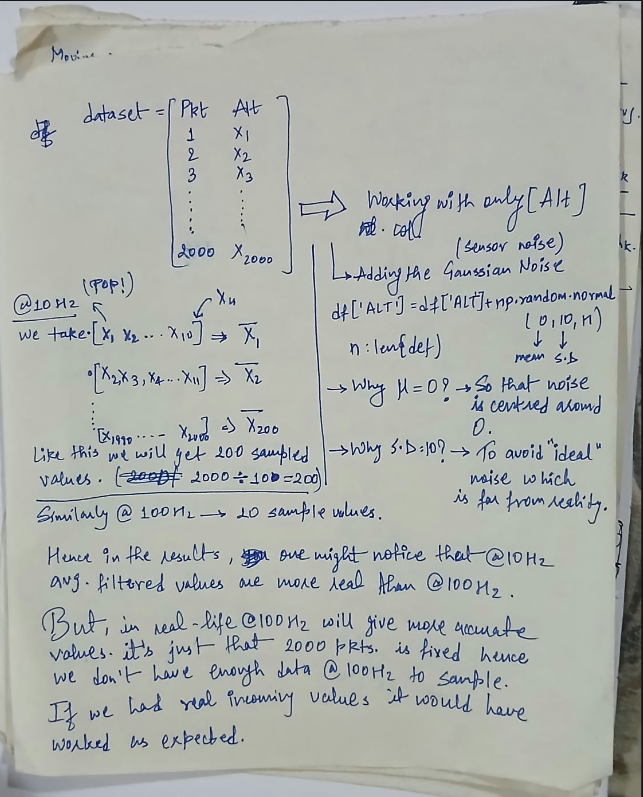 Moving
dataset = [ Pkt Alt
1 X1
2 X2
3 X3
2000 X2000 ]
⇒ Working with only [Alt]
col
(sensor noise)
↳ Adding the Gaussian Noise
df['ALT'] = df['ALT'] + np.random.normal
(0, 10, n)
mean S.D
n: len(def)
→ Why μ = 0? → So that noise
is centred around
0.
→ Why S.D = 10? → To avoid "ideal"
noise which
is far from reality.
(POP!)
@10Hz
X11
we take • [X1 X2 ... X10] ⇒ X̄1
• [X2, X3, X4 ... X11] ⇒ X̄2
[X1990 ---- X2000] ⇒ X̄200
Like this we will get 200 sampled
values. (2000 ÷ 10 = 200)
Similarly @ 100Hz → 20 sample values.
Hence in the results, one might notice that @10Hz
avg. filtered values are more real than @100Hz.
But, in real-life @100Hz will give more accurate
values. it's just that 2000 pkts. is fixed hence
we don't have enough data @ 100Hz to sample.
If we had real incoming values it would have
worked as expected.